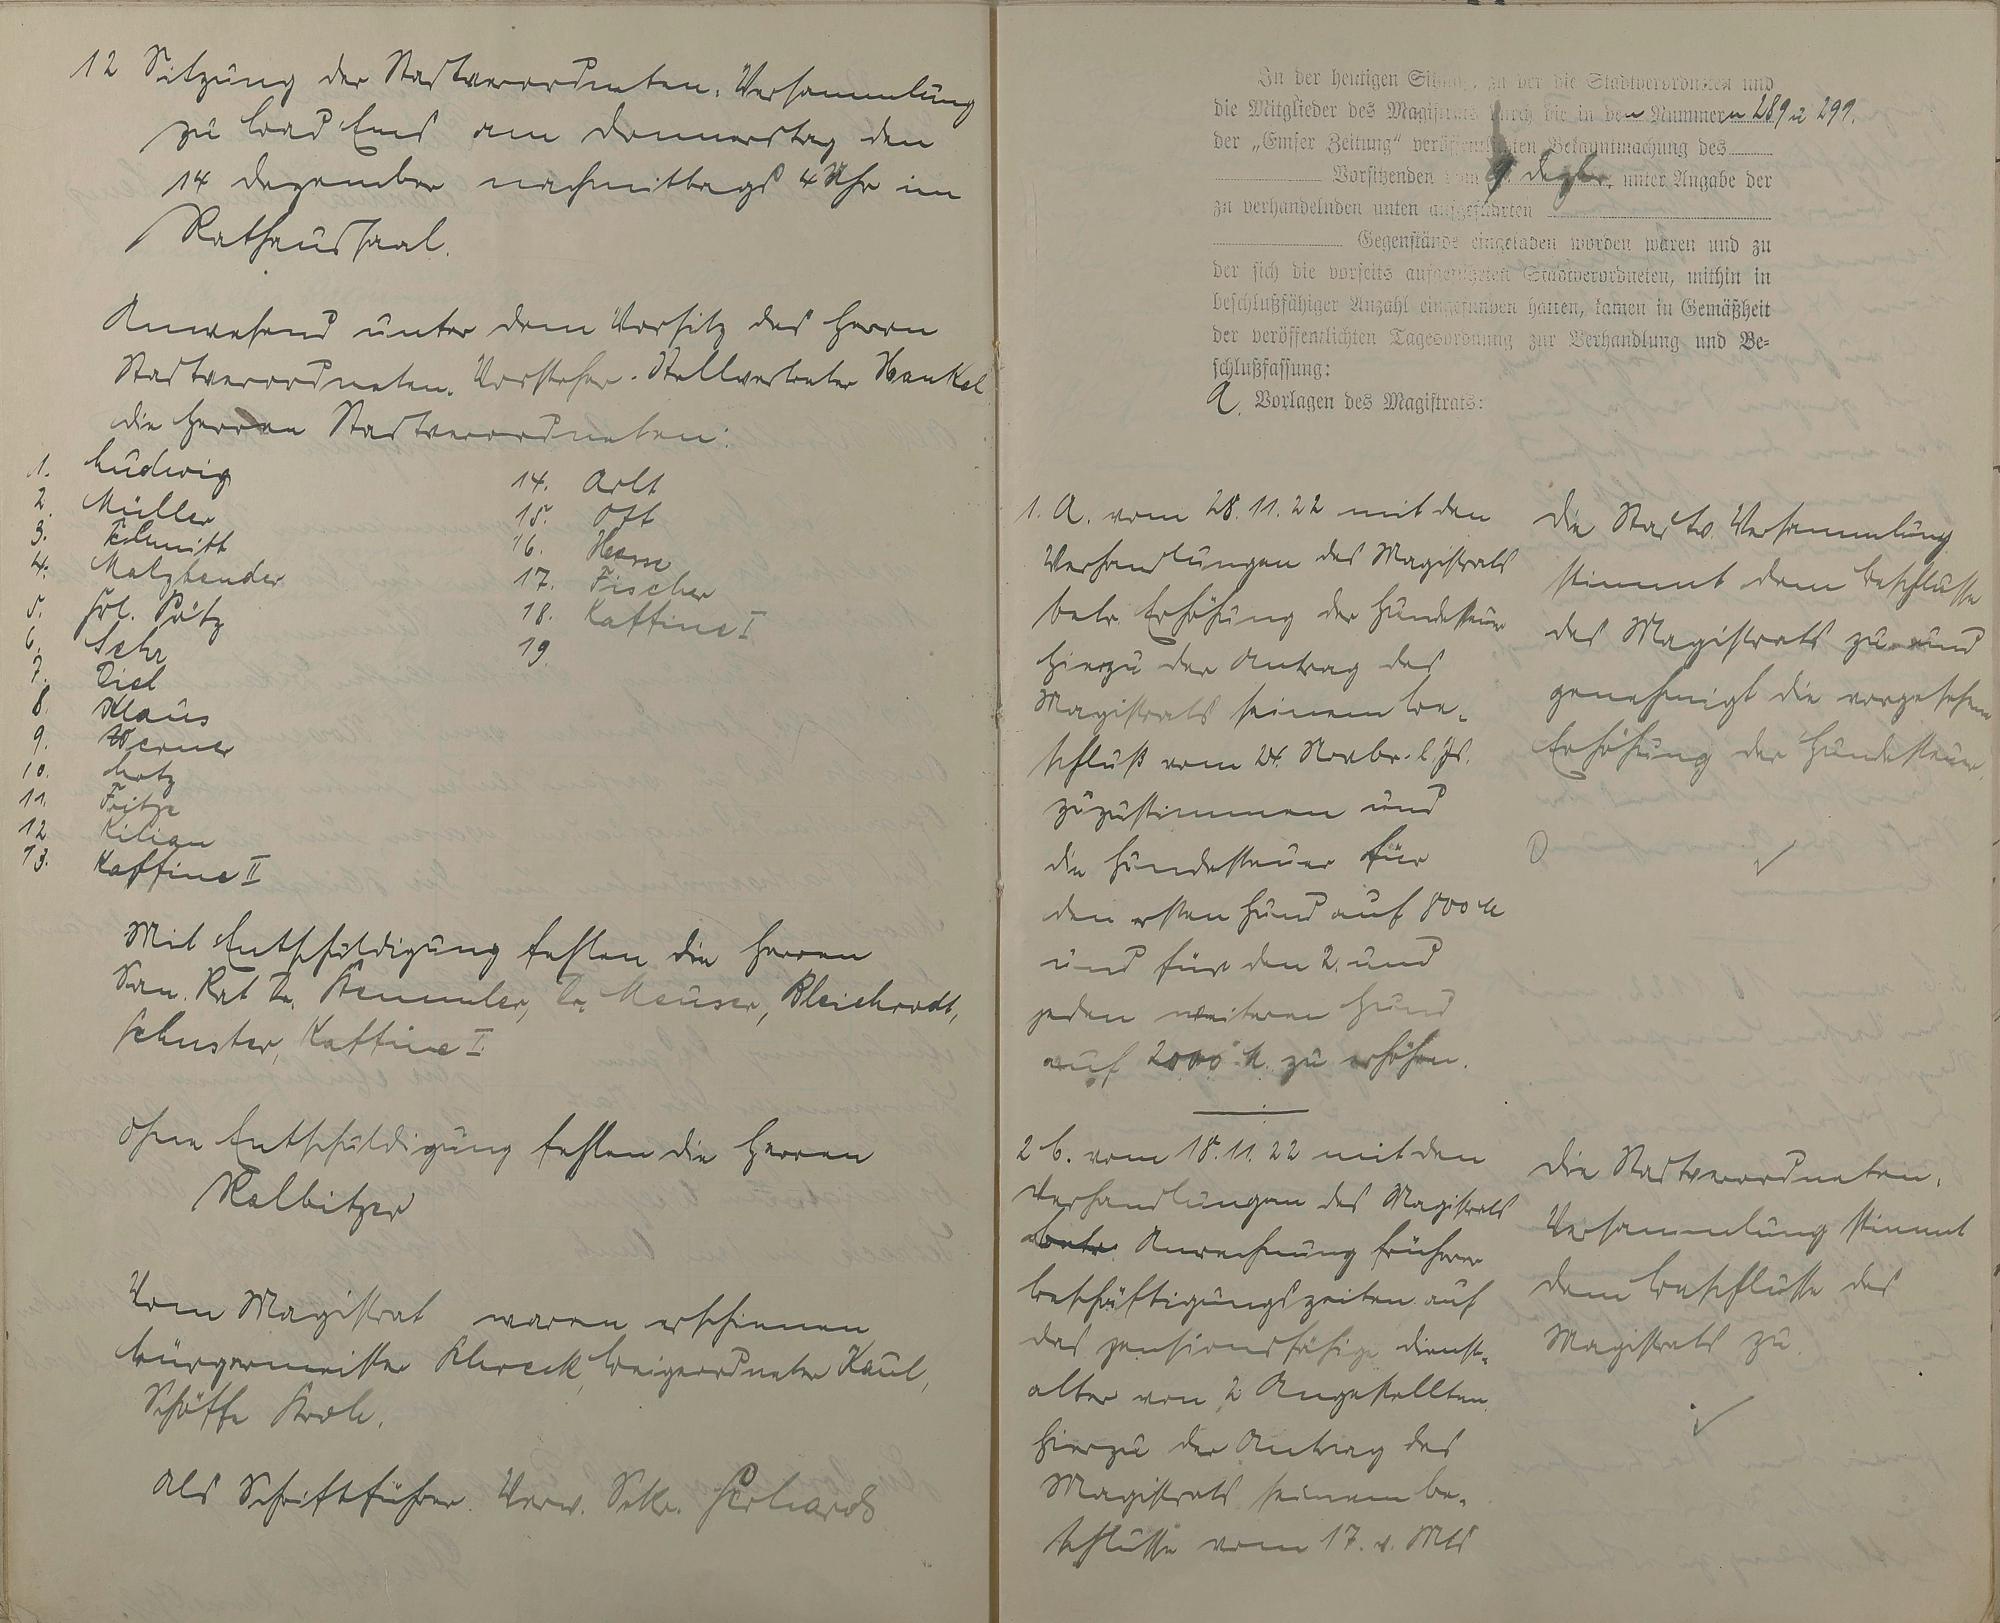 12 Sitzung der Stadtverordneten-Versammlung
zu Bad Ems am Donnerstag den
14 Dezember nachmittags 4 Uhr im
Rathaussaal.
Anwesend unter dem Vorsitz des Herrn
Stadtverordneten-Vorsteher-Stellvertreter Henkel
die Herren Stadtverordneten:
1. Ludwig
2. Müller
3. Schmitt
4. Malzbender
5. Frl. Pätz
6. Sehr
7. Diel
8. Klaus
9. Werner
10. Lotz
11. Fritze
12 Kilian
13. Kaffine II
14. Arlt
15. Ott
16.
17. Fischer
18. Kaffine I
19.
Mit Entschuldigung fehlen die Herren
San. Rat Dr. Stemmler, Dr. Meuser, Bleichrodt,
Schuster, Kaffine I
Ohne Entschuldigung fehlen die Herren
Kalbitzer
Vom Magistrat waren erschienen
Bürgermeister Beigeordneter Kaul,
Schöffe
Als Schriftführer. Verw. Sekr. Gerhards
In der heutigen Sitzung, zu der die Stadtverordneten und
die Mitglieder des Magistrats durch die in den Nummern 289 u 291.
der „Emser Zeitung" veröffentlichten Bekanntmachung des
Vorsitzenden vom 9 Dezbr. unter Angabe der
zu verhandelnden unten aufgeführten
Gegenstände eingeladen worden waren und zu
der sich die vorseits aufgeführten Stadtverordneten, mithin in
beschlußfähiger Anzahl eingefunden hatten, kamen in Gemäßheit
der veröffentlichten Tagesordnung zur Verhandlung und Be-
schlußfassung:
A. Vorlagen des Magistrats:
1. A. vom 28.11.22 mit den
Verhandlungen des Magistrats
betr. Erhöhung der Hundesteuer
hierzu der Antrag des
Magistrats seinem Be-
schluß vom 24. Novbr. l. Js.
zuzustimmen und
die Hundesteuer für
den ersten Hund auf 800 M
und für den 2. und
jeden weiteren Hund
auf 2000 M. zu erhöhen.
Die Stadtv. Versammlung
stimmt dem Beschlusse
des Magistrats zu und
genehmigt die vorgesehene
Erhöhung der Hundesteuer.
2 B. vom 18.11.22 mit den
Verhandlungen des Magistrats
betr. Anrechnung früherer
Beschäftigungszeiten auf
das pensionsfähige Dienst-
alter von 2 Angestellten
hierzu der Antrag des
Magistrats seinem Be-
schlusse vom 17. v. Mts
Die Stadtverordneten-
Versammlung stimmt
dem Beschlusse des
Magistrats zu.